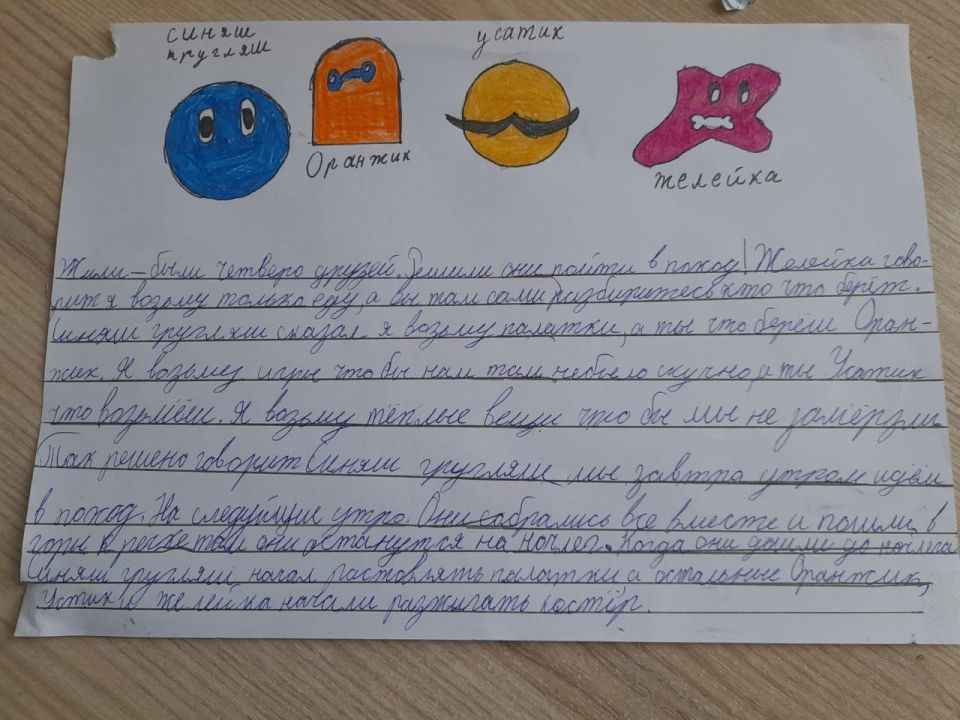 синяш
кругляш
Оранжик
усатик
желейка
Жили-были четверо друзей. Решили они пойти в поход! Желейка гово-
рит я возьму только еду, а вы там сами разбиритесь кто что берёт.
Синяш гругляш сказал я возьму палатки, а ты что берёш Оран-
жик. Я возьму игры что бы нам там небыло скучно, а ты Усатик
что возьмёш. Я возьму тёплые вещи что бы мы не замёрзли
Так решено говорит Синяш гругляш мы завтра утром идём
в поход. На следуйщие утро. Они собрались все вместе и пошли в
горы к там они останутся на ночлег. Когда они дошли до ночлега
Синяш гругляш начал растовлять палатки а остальные Оранжик,
Устик и желейка начали разжигать костёр.